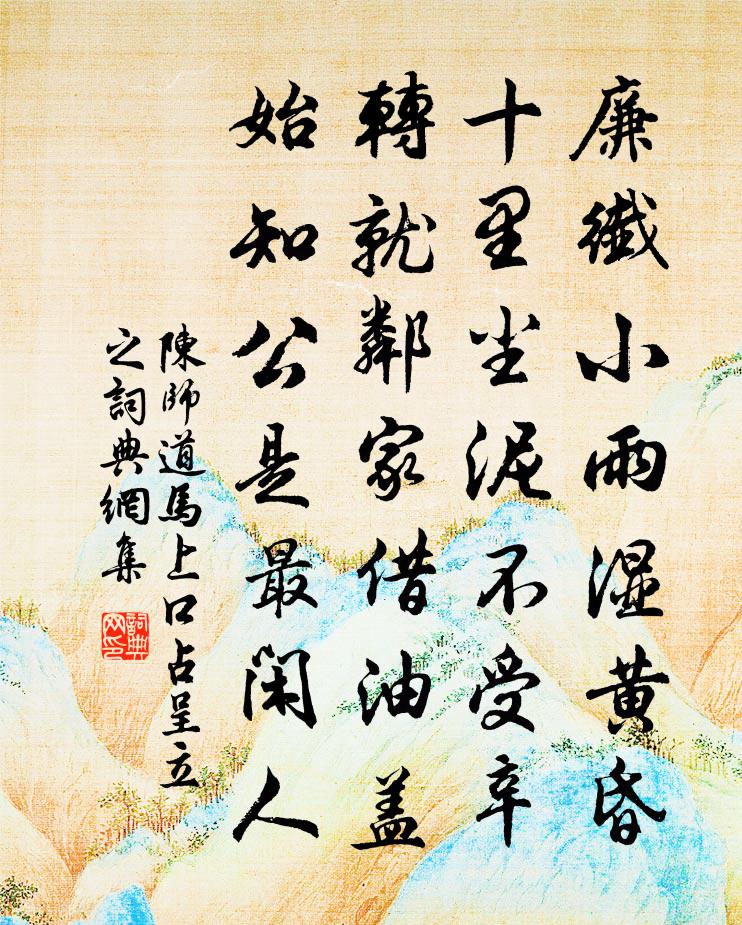 廉纖小雨濕黃昏
十里塵泥不受辛
轉就鄰家借油蓋
始知公是最閑人
陳師道馬上口占呈立
之詞典網集
詞典
网印